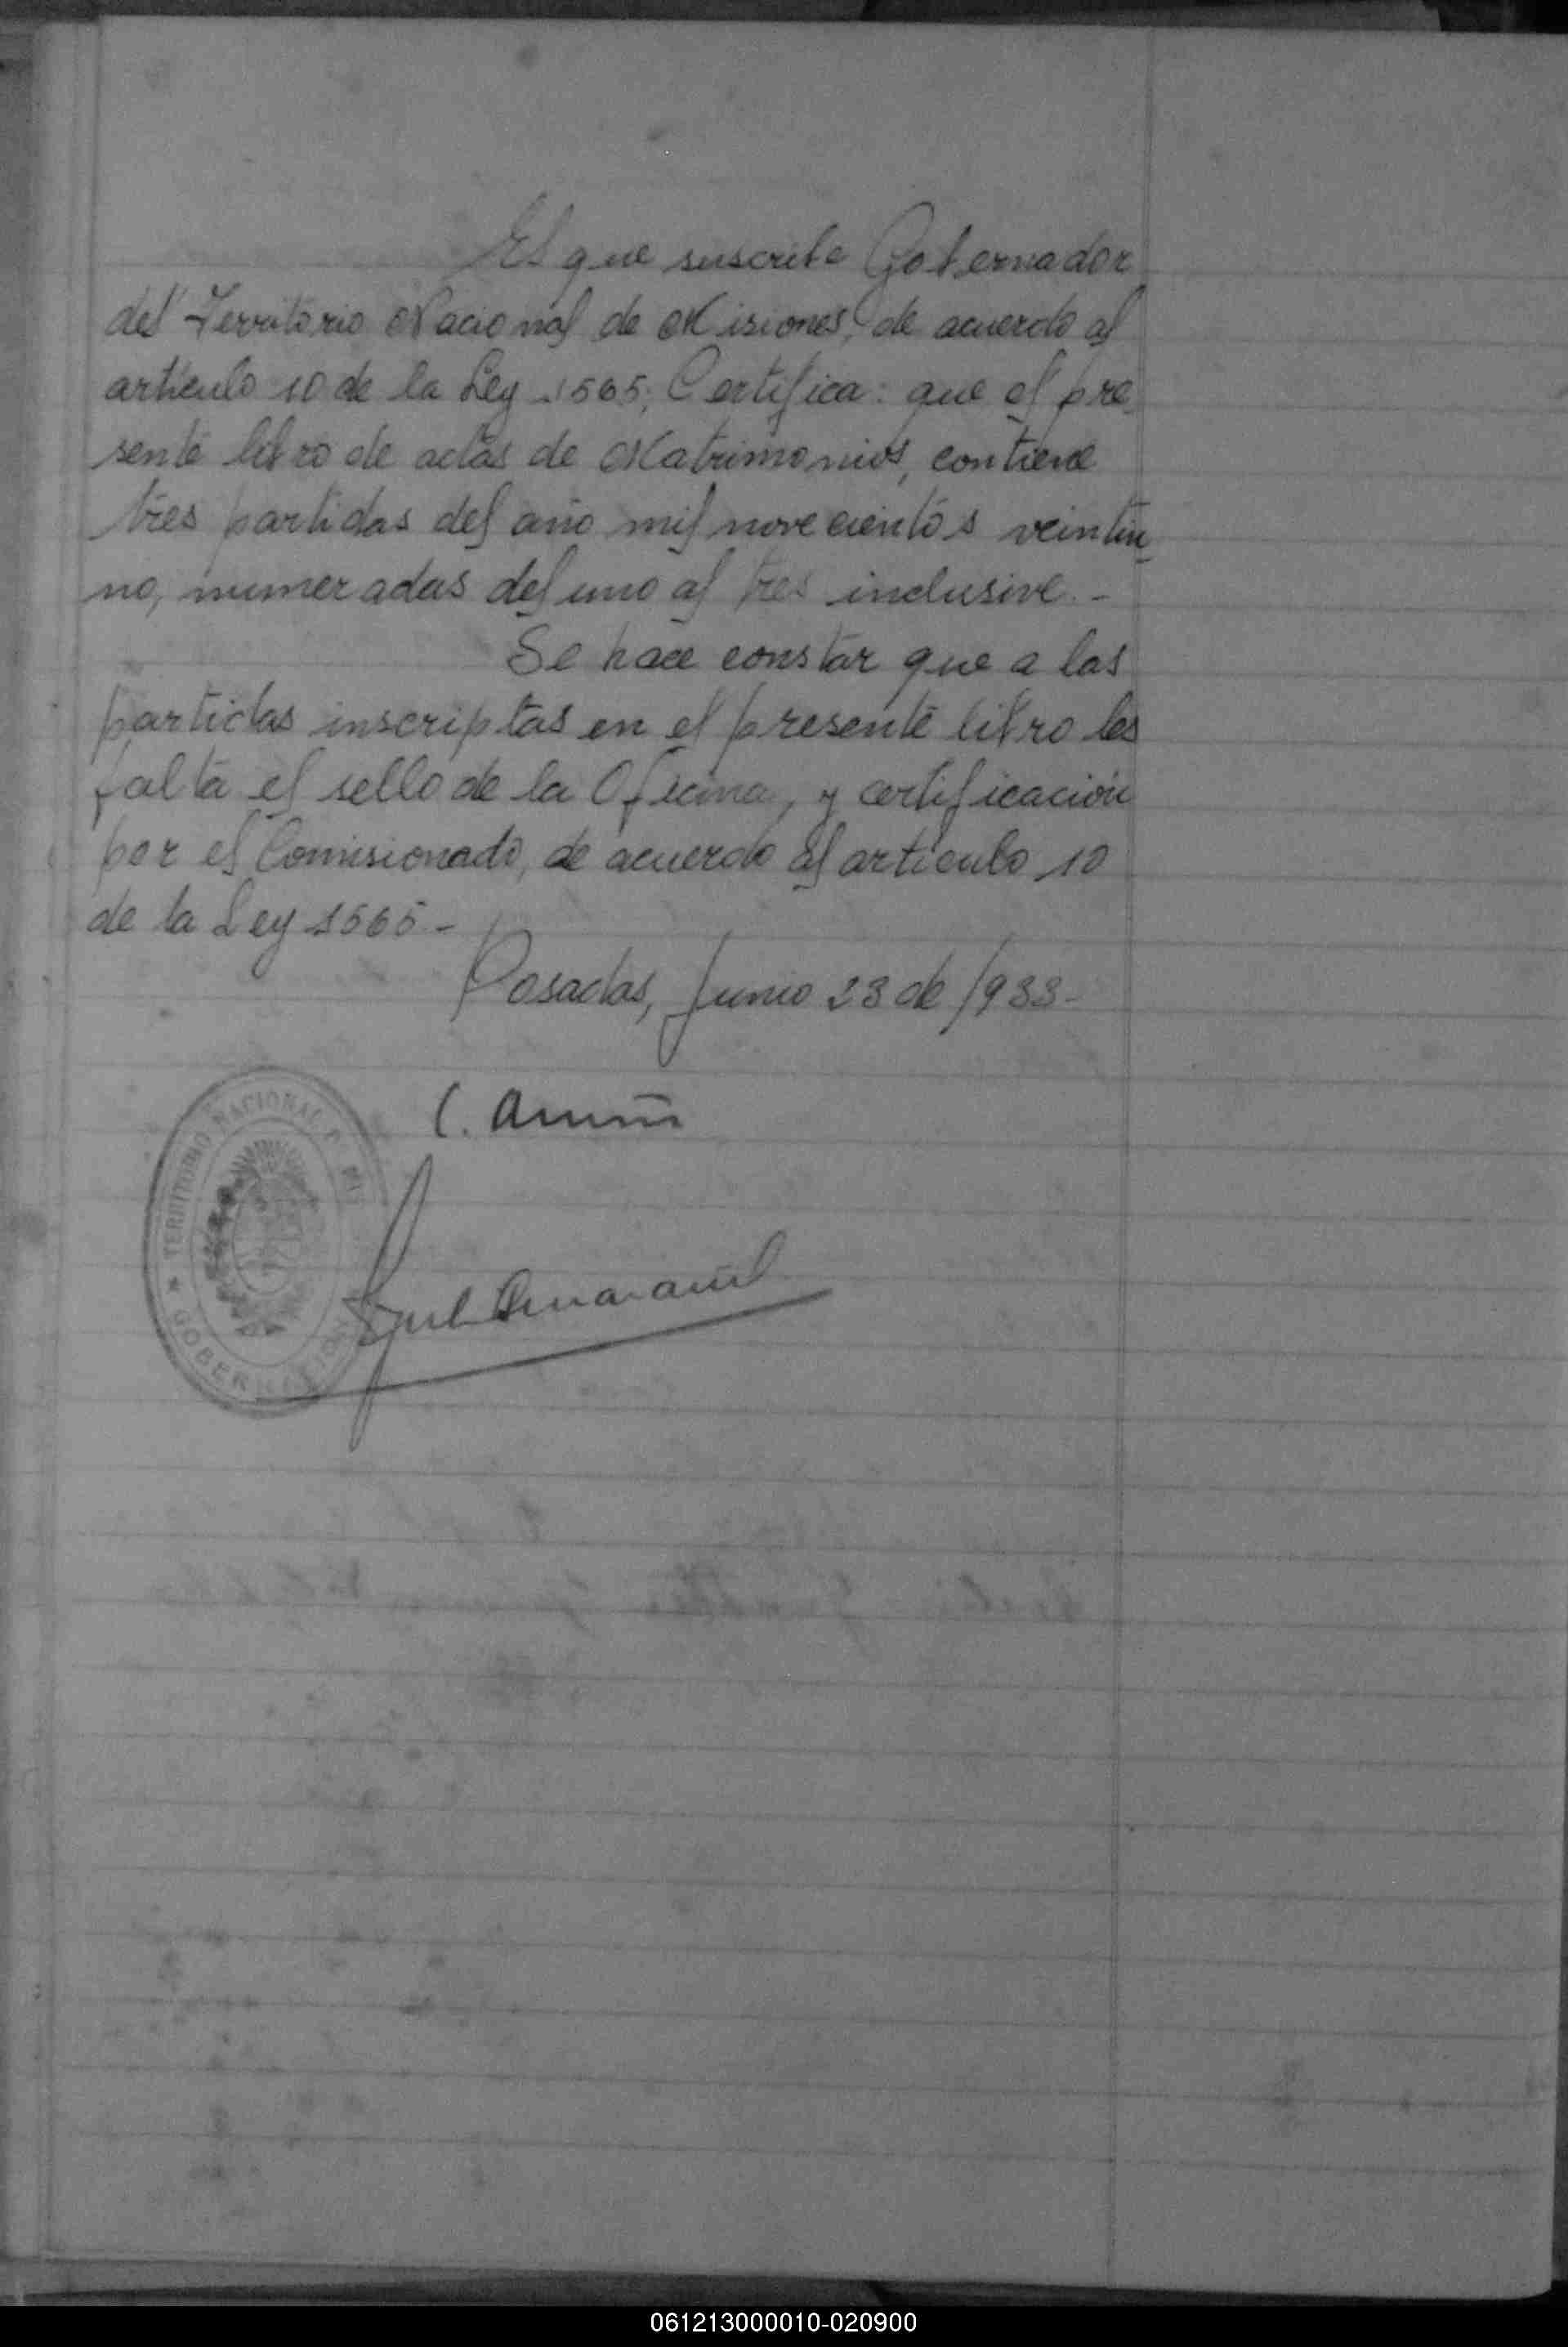 El que suscribe Gobernador
del Territorio Nacional de Misiones, de acuerdo al
artículo 10 de la Ley 1565, Certifica: que el pre-
sente libro de actas de Matrimonios, contiene
tres partidas del año mil novecientos veintiu-
no, numeradas del uno al tres inclusive.-
Se hace constar que a las
partidas inscriptas en el presente libro les
falta el sello de la Oficina, y certificación
por el Comisionado, de acuerdo al artículo 10
de la Ley 1565.-
Posadas, Junio 23 de 1933-
C.
TERRITORIO NACIONAL D MI
GOBERNACION
061213000010-020900